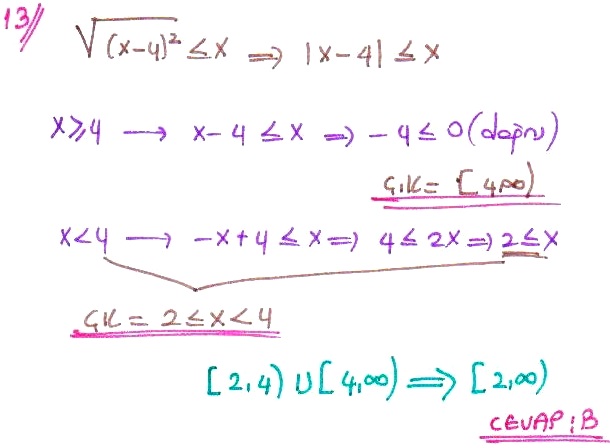 13// √(x-4)² ≤ x ⇒ |x-4| ≤ x
x ≥ 4 → x-4 ≤ x ⇒ -4 ≤ 0 (doğru)
Ç.K = [4,∞)
x < 4 → -x+4 ≤ x ⇒ 4 ≤ 2x ⇒ 2 ≤ x
ÇK = 2 ≤ x < 4
[2,4) ∪ [4,∞) ⇒ [2,∞)
CEVAP: B